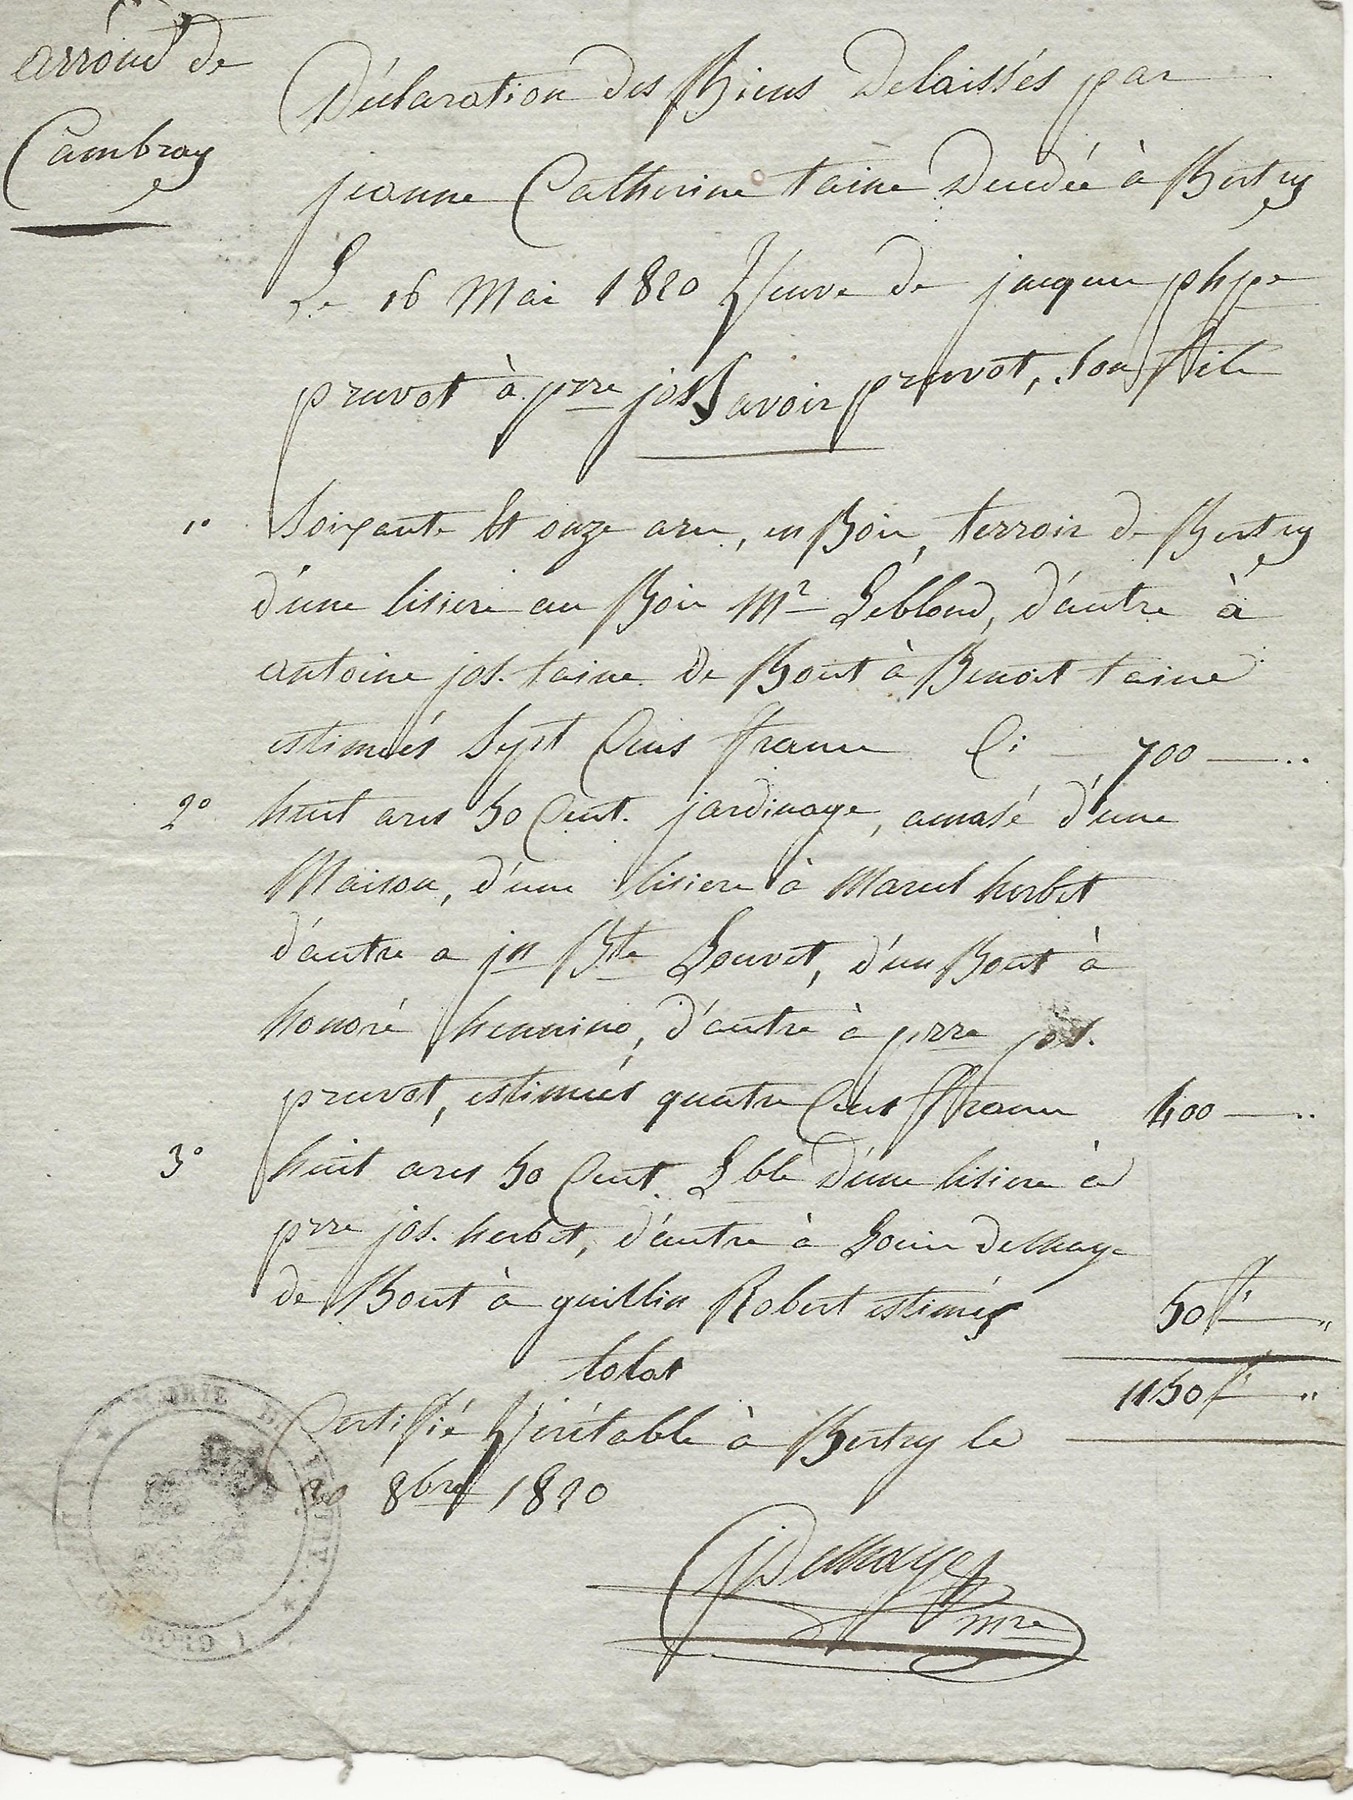 arrond de
Cambray
Déclaration des Biens Delaissés par
jeanne Catherine taine Decedée à Bertry
Le 16 Mai 1820 Veuve de jacques phpe
pruvot à prre jos pruvot, son fils
Savoir
1° Soixante Et onze ares, en Bois, terroir de Bertry
d'une lisiere au Bois Mr Leblond, d'autre à
antoine jos. taine de Bout à Benoit taine
estimés Sept Cens francs Ci 700
2° huit ares 50 Cent. jardinage, amasé d'une
Maison, d'une lisiere à Marcel herbet
d'autre a jn Bte Louvet, d'un Bout à
honoré hennino, d'autre à prre jos.
pruvot, estimés quatre Cens francs 400
3° huit ares 50 Cent. Lble D'une lisiere à
prre jos. herbet, d'autre à Louis Delhaye
de Bout à guillin Robert estimés 50f
total 1150f
Certifié Véritable à Bertry le
20 8bre 1820
Delhaye
mre
MAIRIE DE
NORD